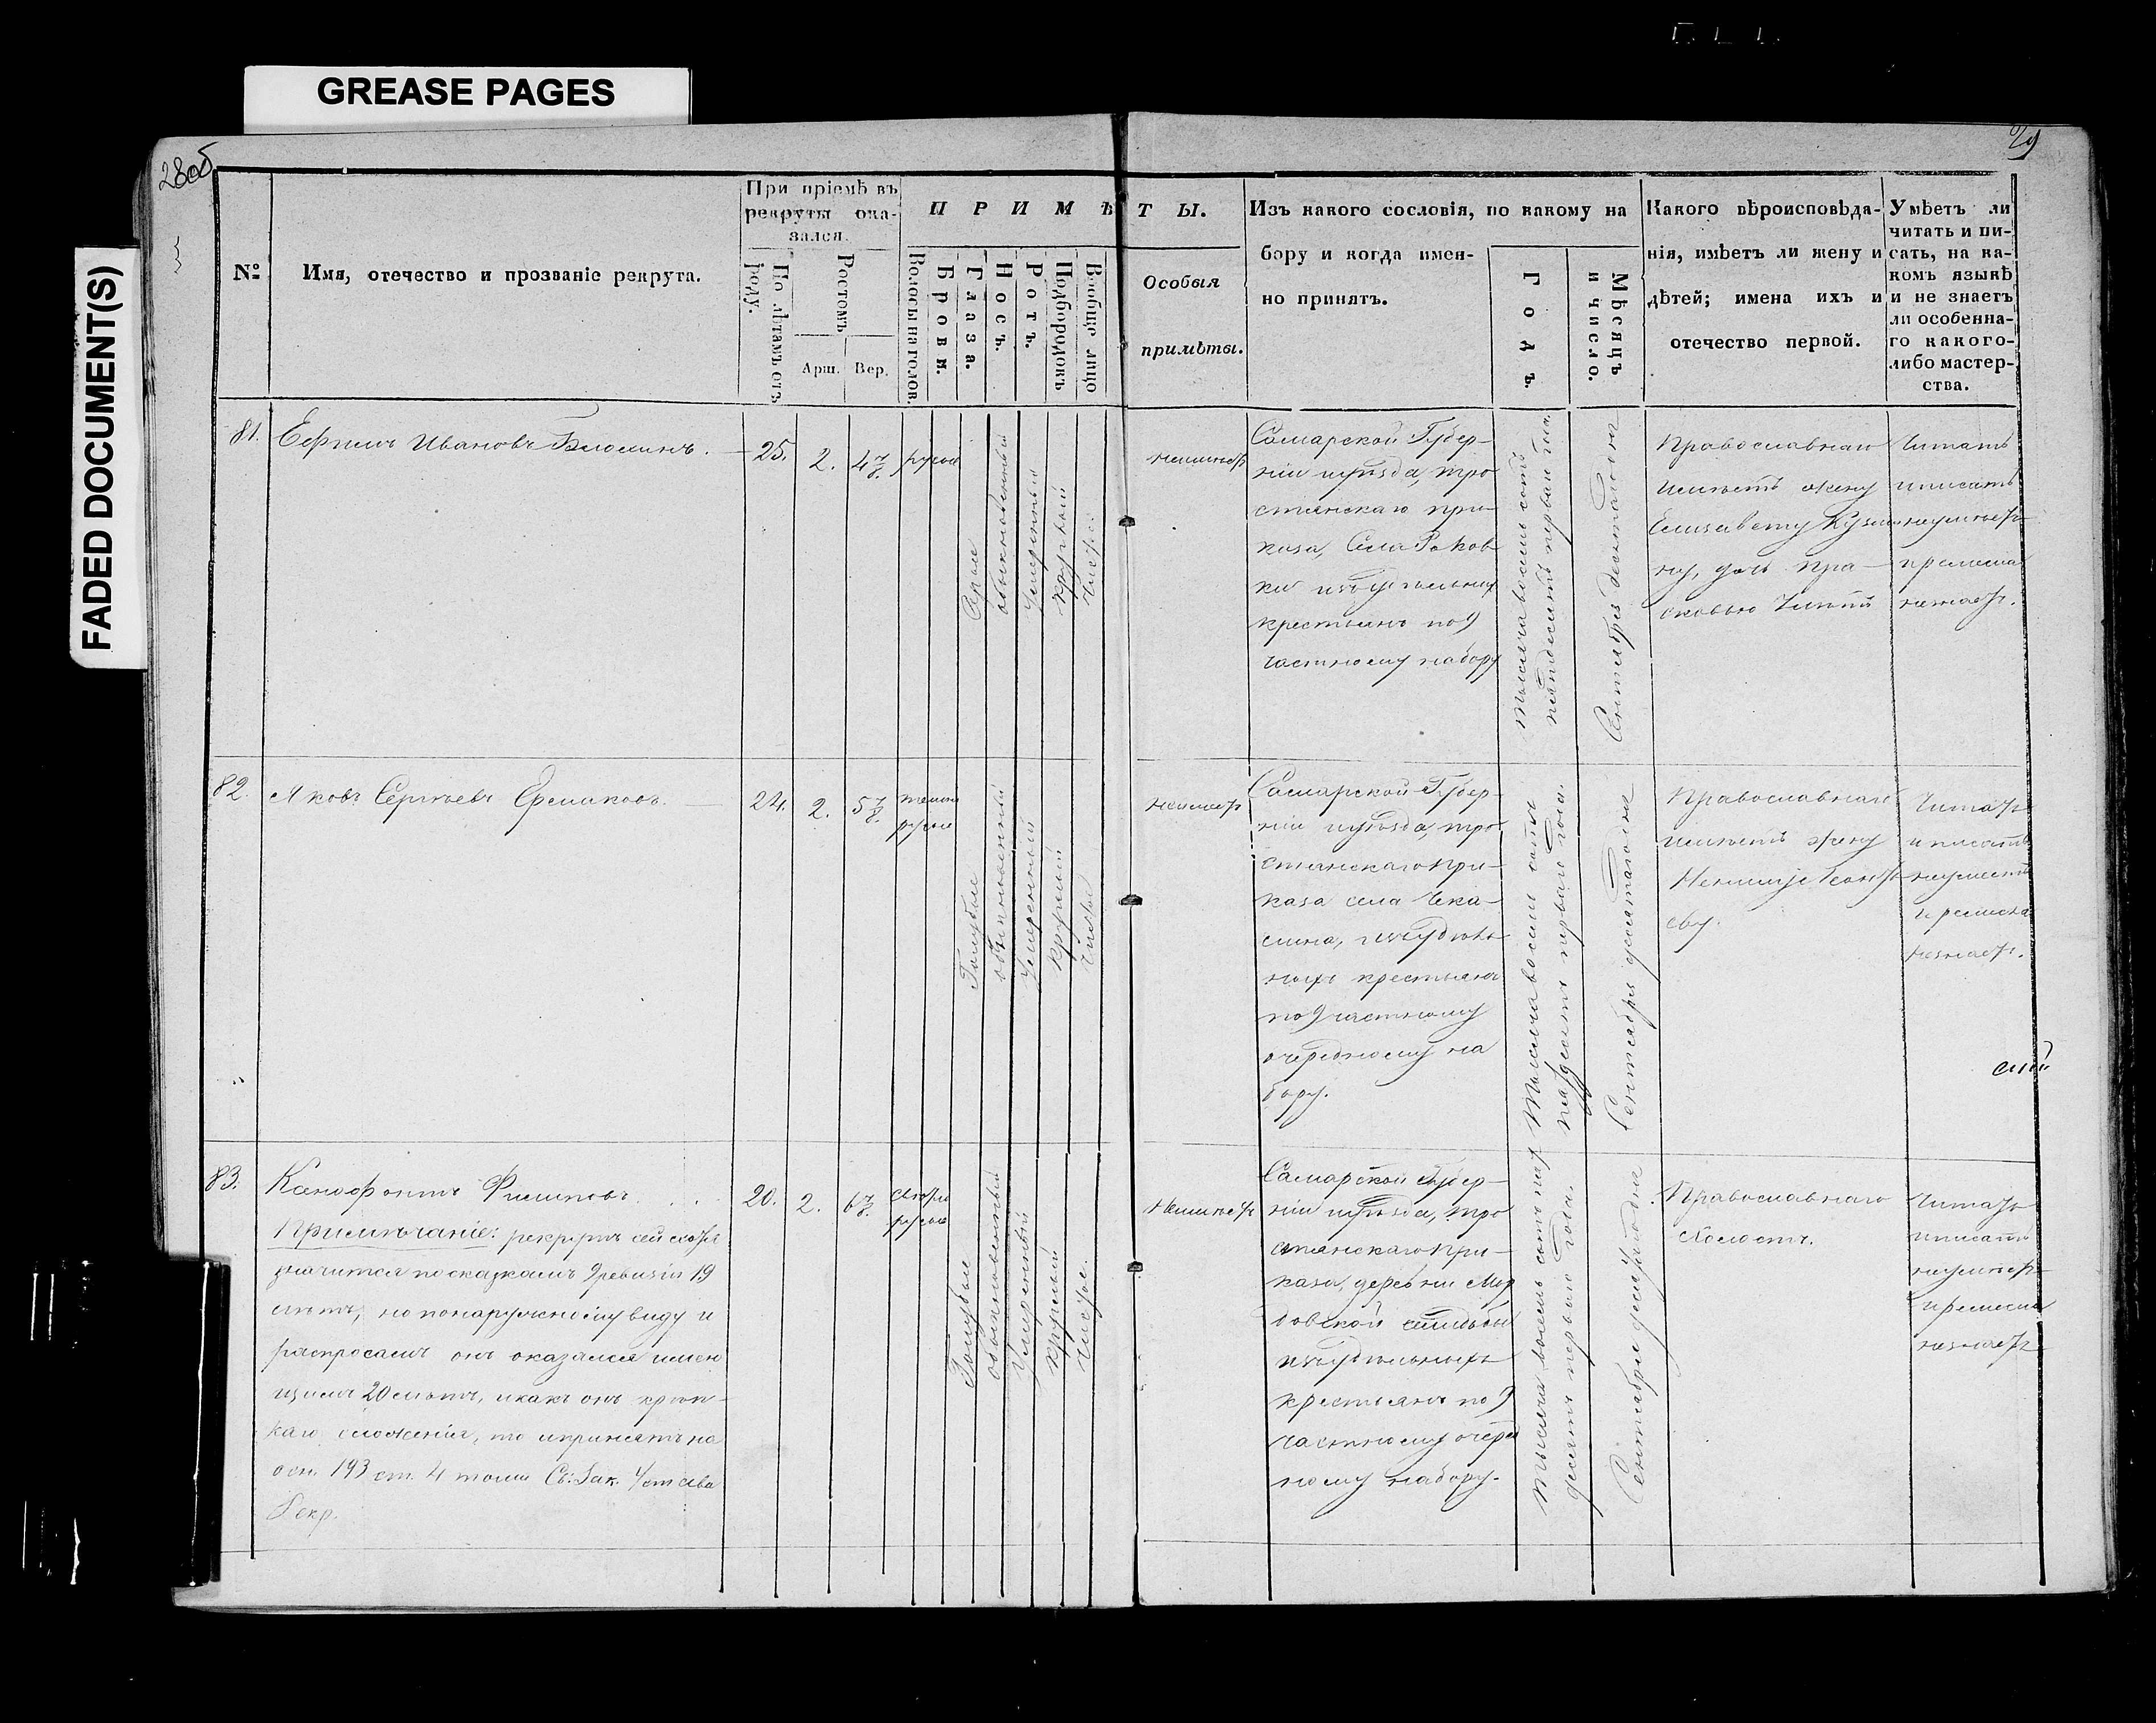 GREASE PAGES
FADED DOCUMENT(S)
28об
29
№
Имя, отечество и прозваніе рекрута.
При пріемѣ въ
рекруты ока-
зался.
По лѣтамъ отъ
роду.
Ростомъ
Арш.
Вер.
ПРИМѢТЫ.
Волосы на голов.
Брови.
Глаза.
Носъ.
Ротъ.
Подбородокъ
Вообще лицо
Особыя
примѣты.
Изъ какого сословія, по какому на
бору и когда имен-
но принятъ.
Годъ.
Мѣсяцъ
и число.
Какого вѣроисповѣда-
нія, имѣетъ ли жену и
дѣтей; имена ихъ и
отечество первой.
Умѣетъ ли
читать и пи-
сать, на ка-
комъ языкѣ
и не знаетъ
ли особенна-
го какого-
либо мастер-
ства.
81.
Ефимъ Ивановъ
25.
2.
4 7/8.
русые
Серые
обыкновенный
Умеренный
круглый
Чистое.
неимеетъ
Самарской Губер-
ніи иуѣзда, тро
стянскаго при-
каза, Села Раков
ки изъудѣльныхъ
крестьянъ по 9
частному набору
тысяча восемь сотъ
пятьдесятъ первый годъ
Сентября
Православнаго
имѣетъ жену
Елизавету Кузми
ну, дочь Пра-
сковью
Читать
иписать
неумѣетъ
иремесла
незнаетъ.
82.
Яковъ Сергѣевъ Ермаковъ.
24.
2.
5 7/8.
темно
русые
Голубые
обыкновенный
Умеренный
круглый
Чистое
неимеетъ
Самарской Губер-
ніи иуѣзда, тро
стянскаго при-
каза села Чека-
лина, изъудѣль
ныхъ крестьянъ
по 9 частному
очередному на
бору.
Тысяча восемь сотъ
пятьдесятъ перваго года.
Сентября десятаго дня
Православнаго
имѣетъ жену
Читать
и писать
неумеетъ
и ремесла
незнаетъ.
83.
Ксенофонтъ Филиповъ.
Примѣчаніе: рекрутъ сей хотя
значится посказкамъ 9 ревизіи 19
лѣтъ, но понаружному виду и
распросамъ онъ оказался имею
щимъ 20 лѣтъ, и какъ онъ крѣп-
каго сложенія, то ипринятъ на
осн. 193 ст. 4 тома Св: Зак. Устава
Рекр.
20.
2.
6 7/8.
светло
русые
Голубые
обыкновенный
Умеренный
круглый
Чистое.
Неимѣетъ
Самарской Губер-
ніи иуѣзда, тро
стянскаго при-
каза, деревни Мор
довской селидьбы
изъудѣльныхъ
крестьянъ по 9
частному очеред
ному набору.
Тысяча восемь сотъ пять
десятъ перваго года.
Сентября десятаго дня
Православнаго
Холостъ.
Читать
иписать
неумѣетъ
иремесла
незнаетъ